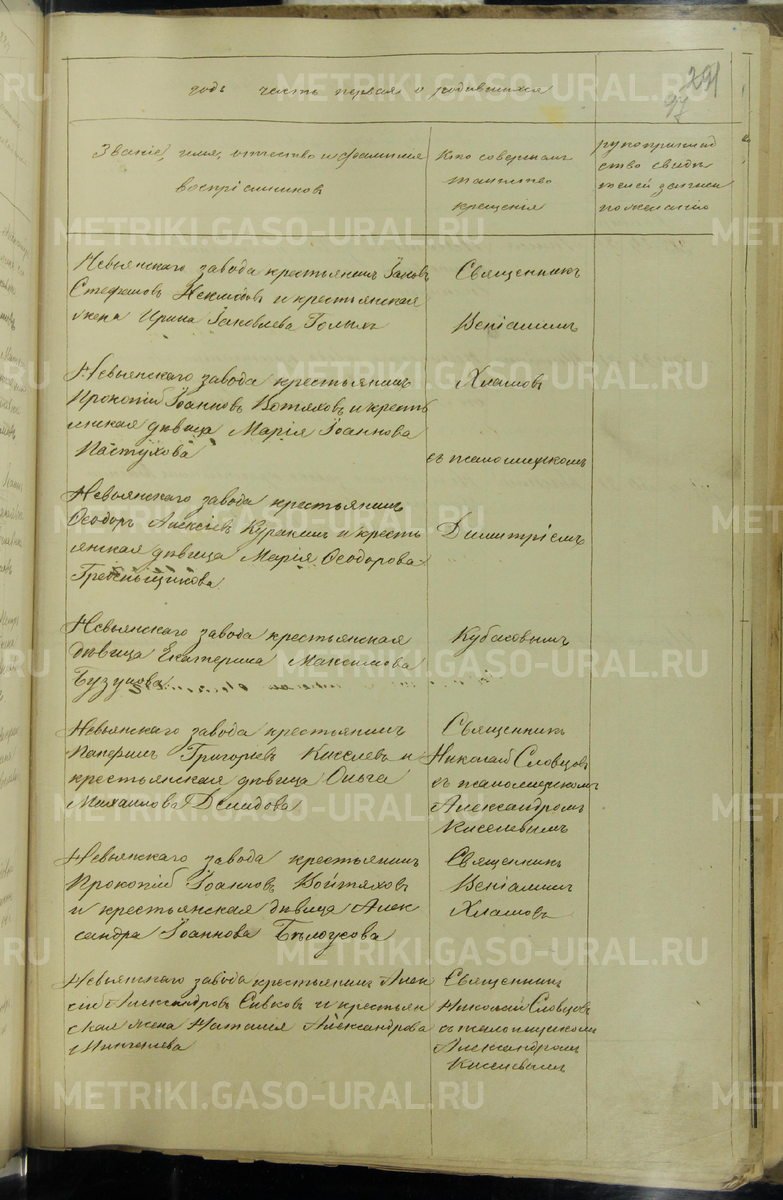 291
97
годъ часть первая о родившихся
Званіе, имя, отчество и фамилія
воспріемниковъ
Кто совершалъ
таинство
крещенія
рукоприклад
ство свидѣ
телей записи
по желанію
Невьянскаго завода крестьянинъ Іаковъ
Стефановъ и крестьянская
жена Ирина Іаковлева
Священникъ
Веніаминъ
Невьянскаго завода крестьянинъ
Прокопій Іоанновъ Вотяховъ и кресть
янская дѣвица Марія Іоаннова
Пастухова
Хламовъ
съ псаломщикомъ
Невьянскаго завода крестьянинъ
Ѳеодоръ Алексіевъ Куракинъ и кресть
янская дѣвица Марія Ѳеодорова
Гребеньщикова
Димитріемъ
Невьянскаго завода крестьянская
дѣвица Екатерина Максимова
Бузунова
Кубасовымъ
Невьянскаго завода крестьянинъ
Паисринъ Григорьевъ Киселевъ и
крестьянская дѣвица Ольга
Михаилова Демидова
Священникъ
Николай Словцовъ
съ псаломщикомъ
Александромъ
Киселевымъ
Невьянскаго завода крестьянинъ
Прокопій Іоанновъ Войтяховъ
и крестьянская дѣвица Алек
сандра Іоаннова Бѣлоусова
Священникъ
Веніаминъ
Хламовъ
Невьянскаго завода крестьянинъ Алек
сій Александровъ Сивковъ и крестьян
ская жена Наталія Александрова
Священникъ
Николай Словцовъ
съ псаломщикомъ
Александромъ
Киселевымъ
METRIKI.GASO-URAL.RU